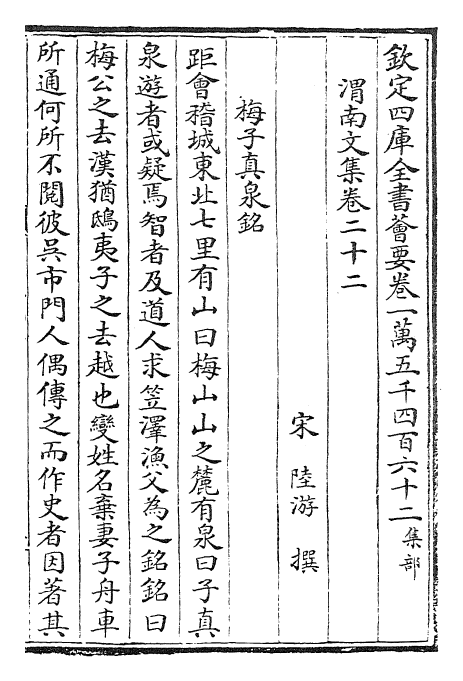 欽定四庫全書薈要卷一萬五千四百六十二集部
渭南文集卷二十二
宋陸游撰
梅子真泉銘
距會稽城東北七里有山曰梅山山之麓有泉曰子真
泉遊者或疑焉智者及道人求笠澤漁父為之銘銘曰
梅公之去漢猶鴟夷子之去越也變姓名棄妻子舟車
所通何所不閱彼吳市門人偶傳之而作史者因著其